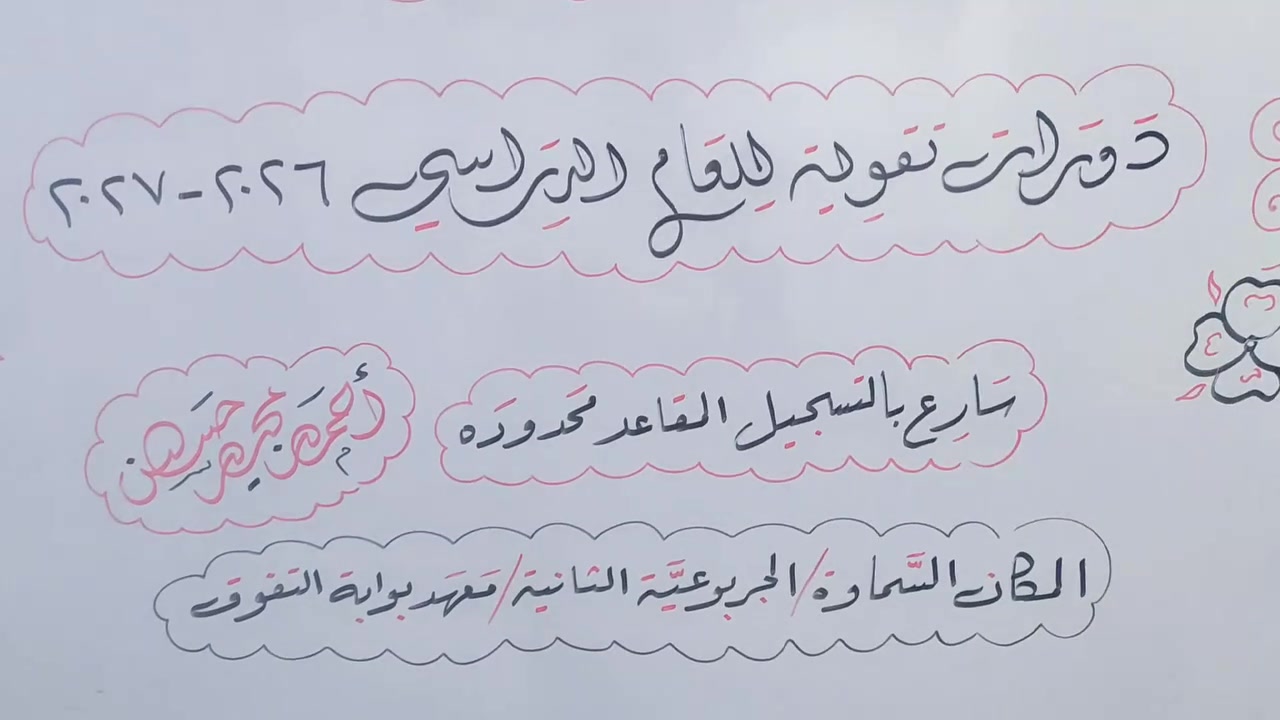 دورات تقوية للعام الدراسي ٢٠٢٦-٢٠٢٧
سَارِع بالتسجيل المقاعد محَدودَه
أحمد حسن
المكان السَّماوة/الجربوعيَّة الثانية/مَعهَد بوابة التفوق